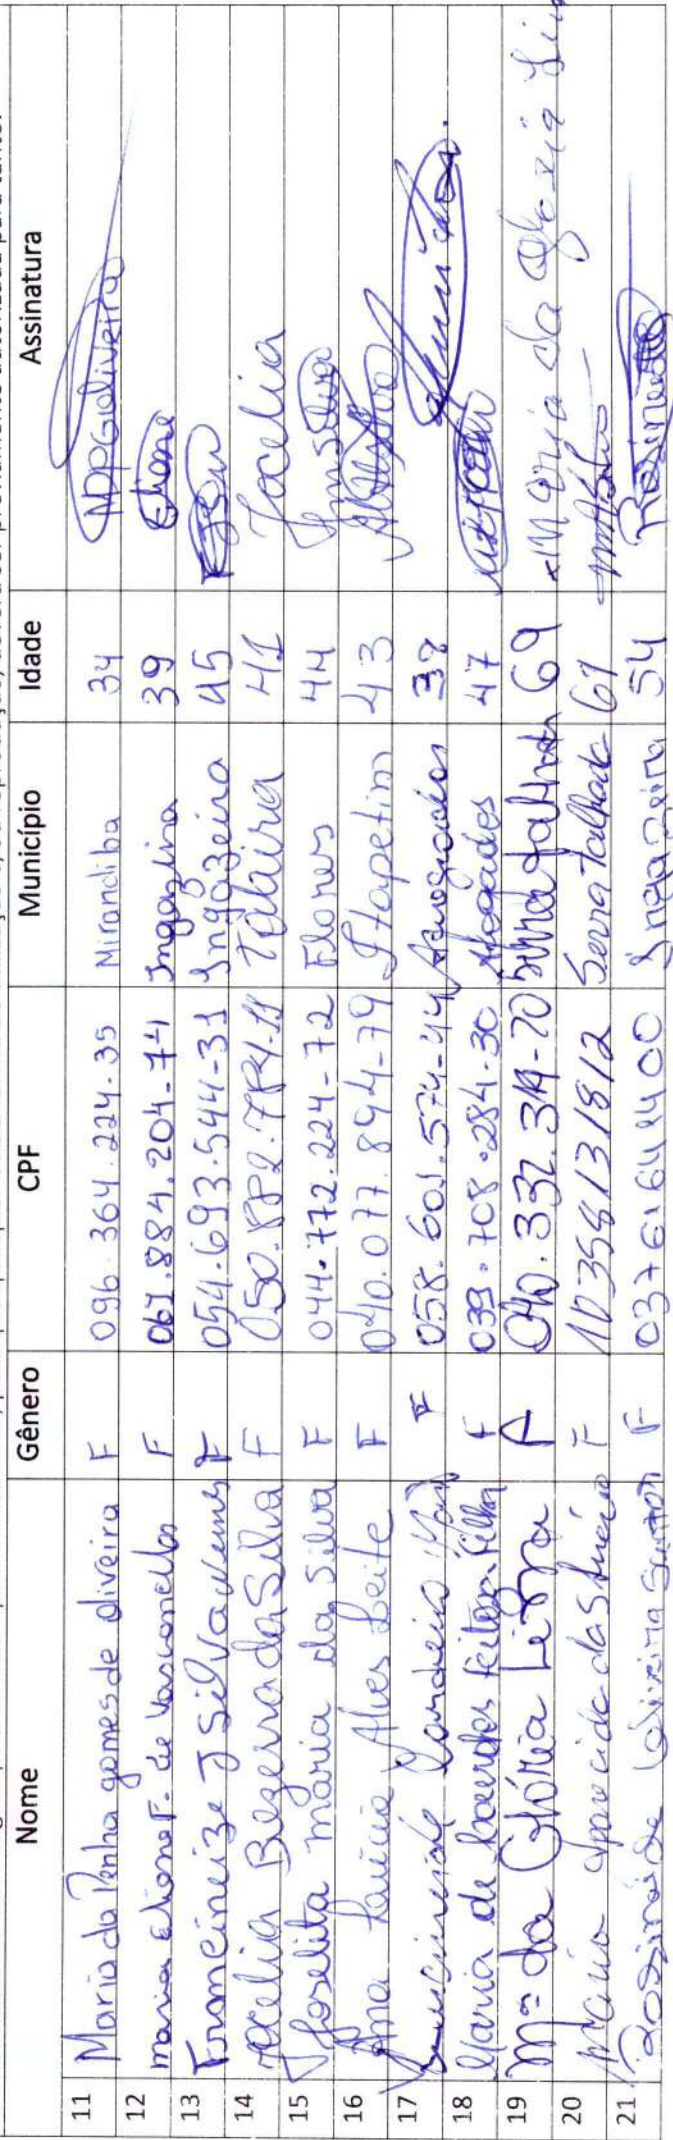 Nome Gênero CPF Município Idade Assinatura
11 Maria da Penha gomes de oliveira F 096.364.224.35 Mirandiba 34 MPGoliveira
12 maria eliane F. de Vasconcellos F 061.884.204-74 Ingazeira 39 Eliane
13 Francineize J Silva F 054.693.544-31 Ingazeira 45
14 Jocelia Bezerra da Silva F 050.882.784-11 Tabira 41 Jocelia
15 Joselita maria da Silva F 044.772.224-72 Flores 44 Jmsilva
16 Ana Lúcia Alves Leite F 040.077.894-79 Itapetim 43
17 Cordeiro F 058.601.574-44 38
18 Maria de Lourdes Feitosa Filha F 039.708.284.30 Afogados 47
19 Mª da Glória Lima 040.332.314-70 Serra talhada 69 Maria da Gloria Lima
20 aparecida da S F 10358131812 Serra Talhada 61
21 Rosineide Oliveira Santos F 03761644400 Ingazeira 54 Rosineide